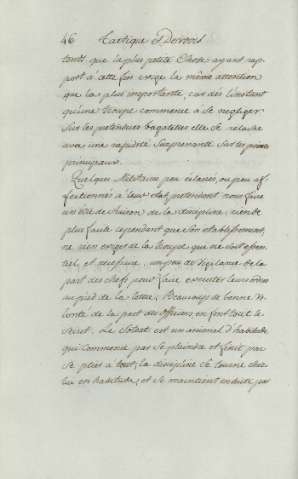 46 Tactique & Devoirs
tents, que la plus petite Chose ayant rap-
port à cette fin exige la même attention
que la plus importante, car dès l'instant
qu'une troupe commence à se negliger
sur les pretendues bagatelles elle se relache
avec une rapidité surprenante sur les points
principaux.
Quelques Militaires peu éclairés, ou peu af-
fectionnés à leur état, pretendent nous faire
un être de raison de la discipline, rien de
plus facile cependant que son etablissement,
ne rien exiger de la troupe que ne soit essen-
tiel, et necessaire, un peu de vigilance de la
part des chefs, pour faire executer leurs ordres
au pied de la lettre; Beaucoup de bonne vo-
lonté de la part des officiers, en font tout le
secret. Le Soldat est un animal d'habitude
qui commence par se plaindre et finit par
se plier à tout; la discipline se tourne chez
lui en habitude, et se maintient ensuite par